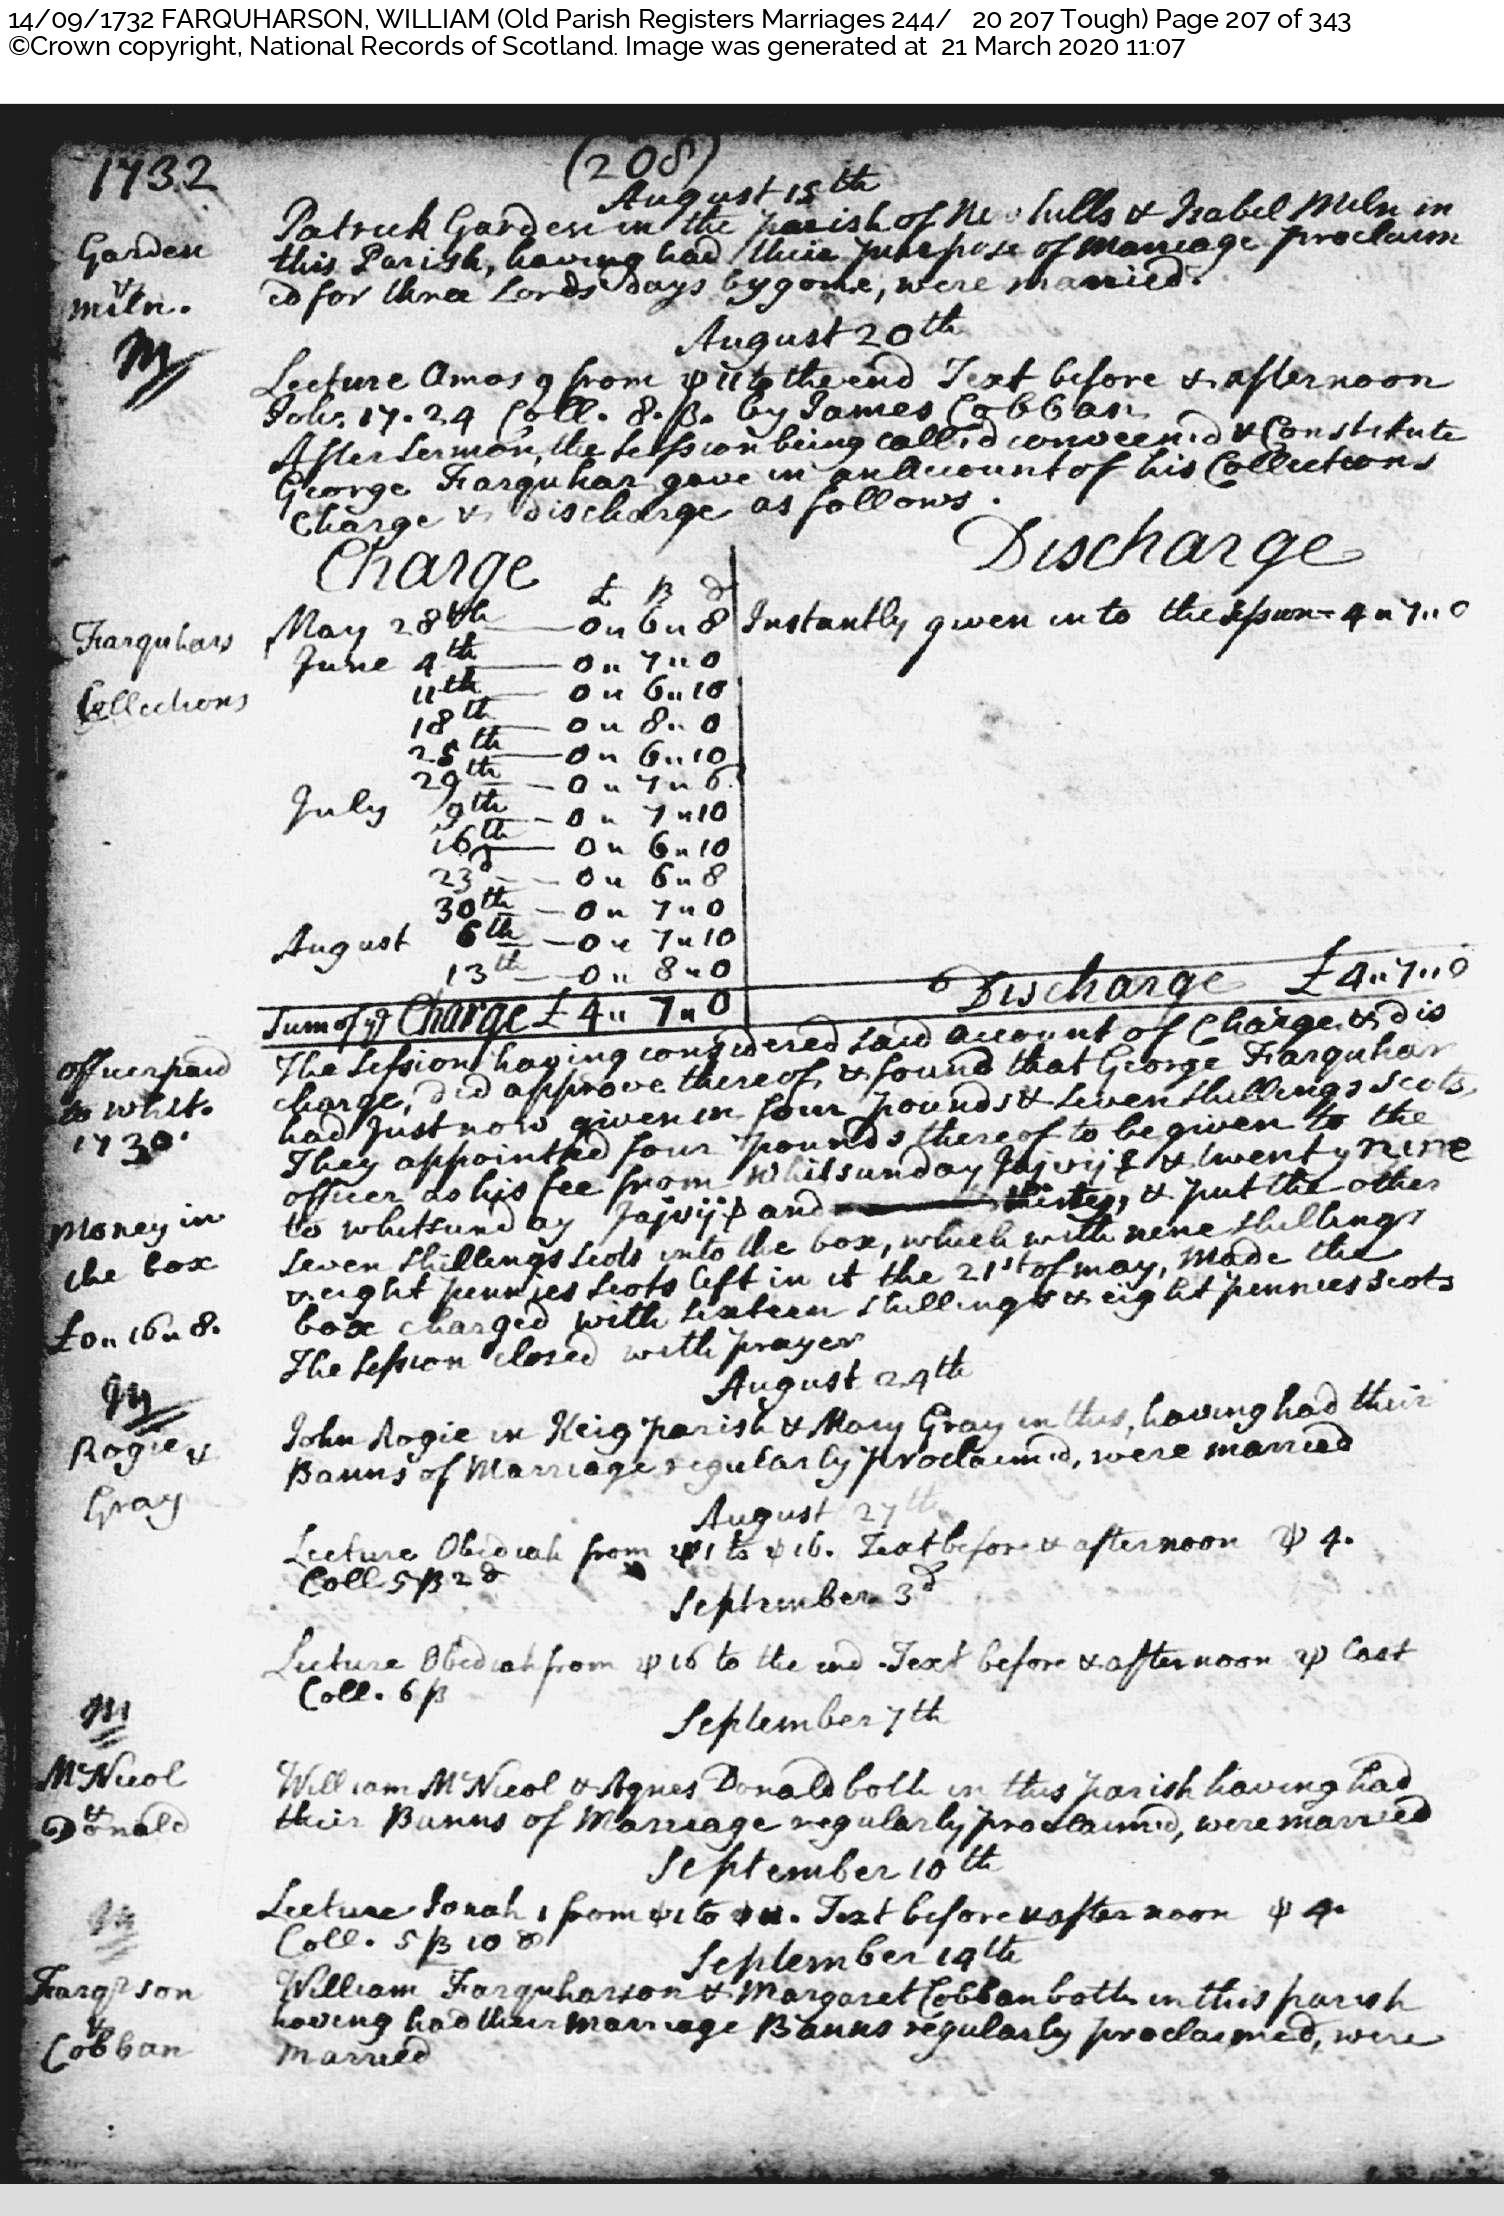 14/09/1732 FARQUHARSON, WILLIAM (Old Parish Registers Marriages 244/ 20 207 Tough) Page 207 of 343
©Crown copyright, National Records of Scotland. Image was generated at 21 March 2020 11:07
1732
(208)
August 15th
Garden
&
Miln.
M
Patrick Garden in the parish of & Isabel Miln in
this Parish, having had their purpose of Marriage proclaim
ed for three Lords days bygone, were married.
August 20th
Lecture Amos 9 from ψ 11 to the end Text before & afternoon
Job. 17. 24 Coll. 8. β. by James Cobban
After sermon, the Session being call'd conveen'd & Constitute
George Farquhar gave in an Account of his Collections
Charge & discharge as follows.
Charge
Discharge
£ β d
Farquhars
Collections
May 28th 0 " 6 " 8 Instantly given in to the Session 4 " 7 " 0
June 4th 0 " 7 " 0
11th 0 " 6 " 10
18th 0 " 8 " 0
25th 0 " 6 " 10
29th 0 " 7 " 6
July 9th 0 " 7 " 10
16th 0 " 6 " 10
23d 0 " 6 " 8
30th 0 " 7 " 0
August 6th 0 " 7 " 10
13th 0 " 8 " 0
Sum of ye Charge £ 4 " 7 " 0 Discharge £ 4 " 7 " 0
officer paid
to whit.
1730.
The Session having considered said account of Charge & dis
charge, did approve thereof & found that George Farquhar
had Just now given in four pounds & seven shillings scots,
They appointed four pounds thereof to be given to the
officer as his fee from Whitsunday JajvijC & twenty nine
to whitsunday JajvijC and thirty, & put the other
Money in
the box
£0 " 16 " 8.
seven shillings scots into the box, which with nine shillings
& eight pennies scots left in it the 21st of may, Made the
box charged with sixteen shillings & eight pennies scots
The Session closed with prayer
August 24th
M
Rogie &
Gray
John Rogie in Keig parish & Mary Gray in this, having had their
Banns of Marriage regularly proclaimed, were married
August 27th
Lecture Obediah from ψ 1 to ψ 16. Text before & afternoon ψ 4.
Coll 5 β 2 d
September 3d
Lecture Obediah from ψ 16 to the end Text before & afternoon ψ last
Coll. 6 β
September 7th
M
McNicol
&
Donald
William McNicol & Agnes Donald both in this parish having had
their Banns of Marriage regularly proclaimed, were married
September 10th
Lecture Jonah 1 from ψ 1 to ψ 11. Text before & afternoon ψ 4.
Coll. 5 β 10 d
September 14th
M
Farqrson
&
Cobban
William Farquharson & Margaret Cobban both in this parish
having had their marriage Banns regularly proclaimed, were
married